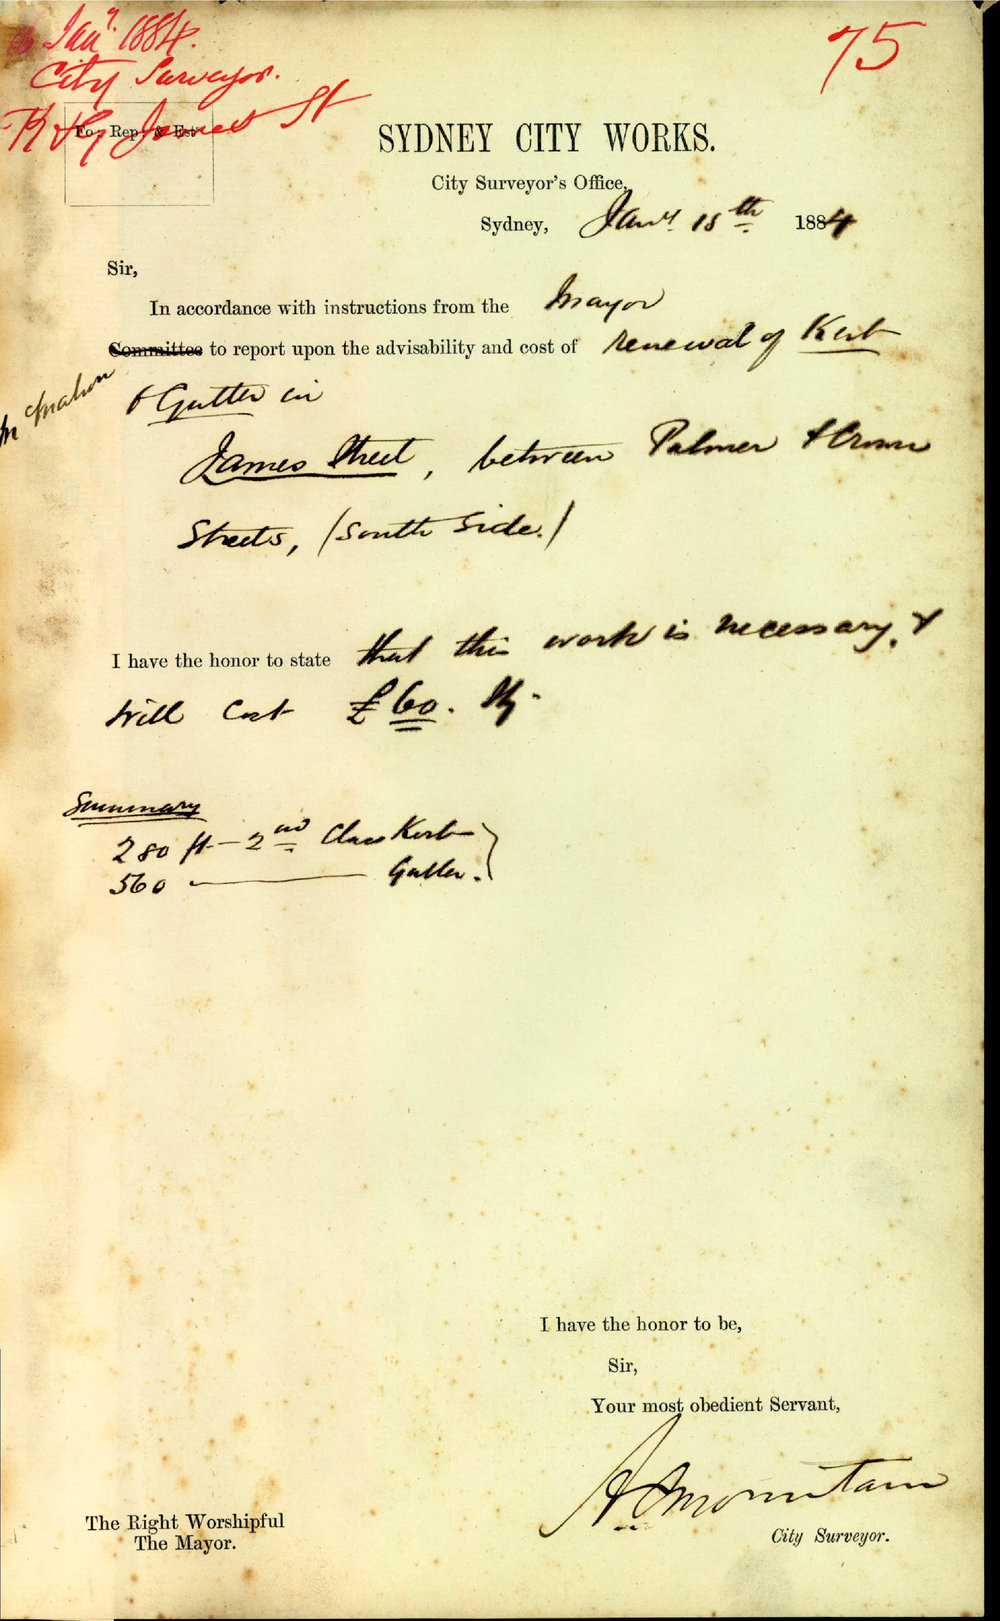 Jany. 1884.
City Surveyor.
75
K & G James St
Fo. Rep & Est
SYDNEY CITY WORKS.
City Surveyor's Office,
Sydney, Jany. 15th 1884
Sir,
In accordance with instructions from the Mayor
Committee to report upon the advisability and cost of renewal of Kerb
McMahon
& Gutter in
James Street, between Palmer & Crown
Streets, (South Side.)
I have the honor to state that this work is necessary, &
will cost £60.
Summary
280 ft - 2nd Class Kerb
560 — Gutter.
I have the honor to be,
Sir,
Your most obedient Servant,
A. Mountain
City Surveyor.
The Right Worshipful
The Mayor.